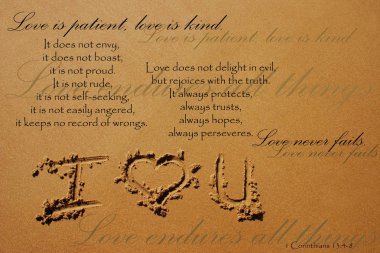 Love is patient, love is kind.
Love is patient, love is kind.
It does not envy,
it does not boast,
it is not proud.
It is not rude,
it is not self-seeking,
it is not easily angered,
it keeps no record of wrongs.
Love does not delight in evil,
but rejoices with the truth.
It always protects,
always trusts,
always hopes,
always perseveres.
Love never fails.
Love never fails
Love endures all things
I ♥ U
Love endures all things
1 Corinthians 13:4-8